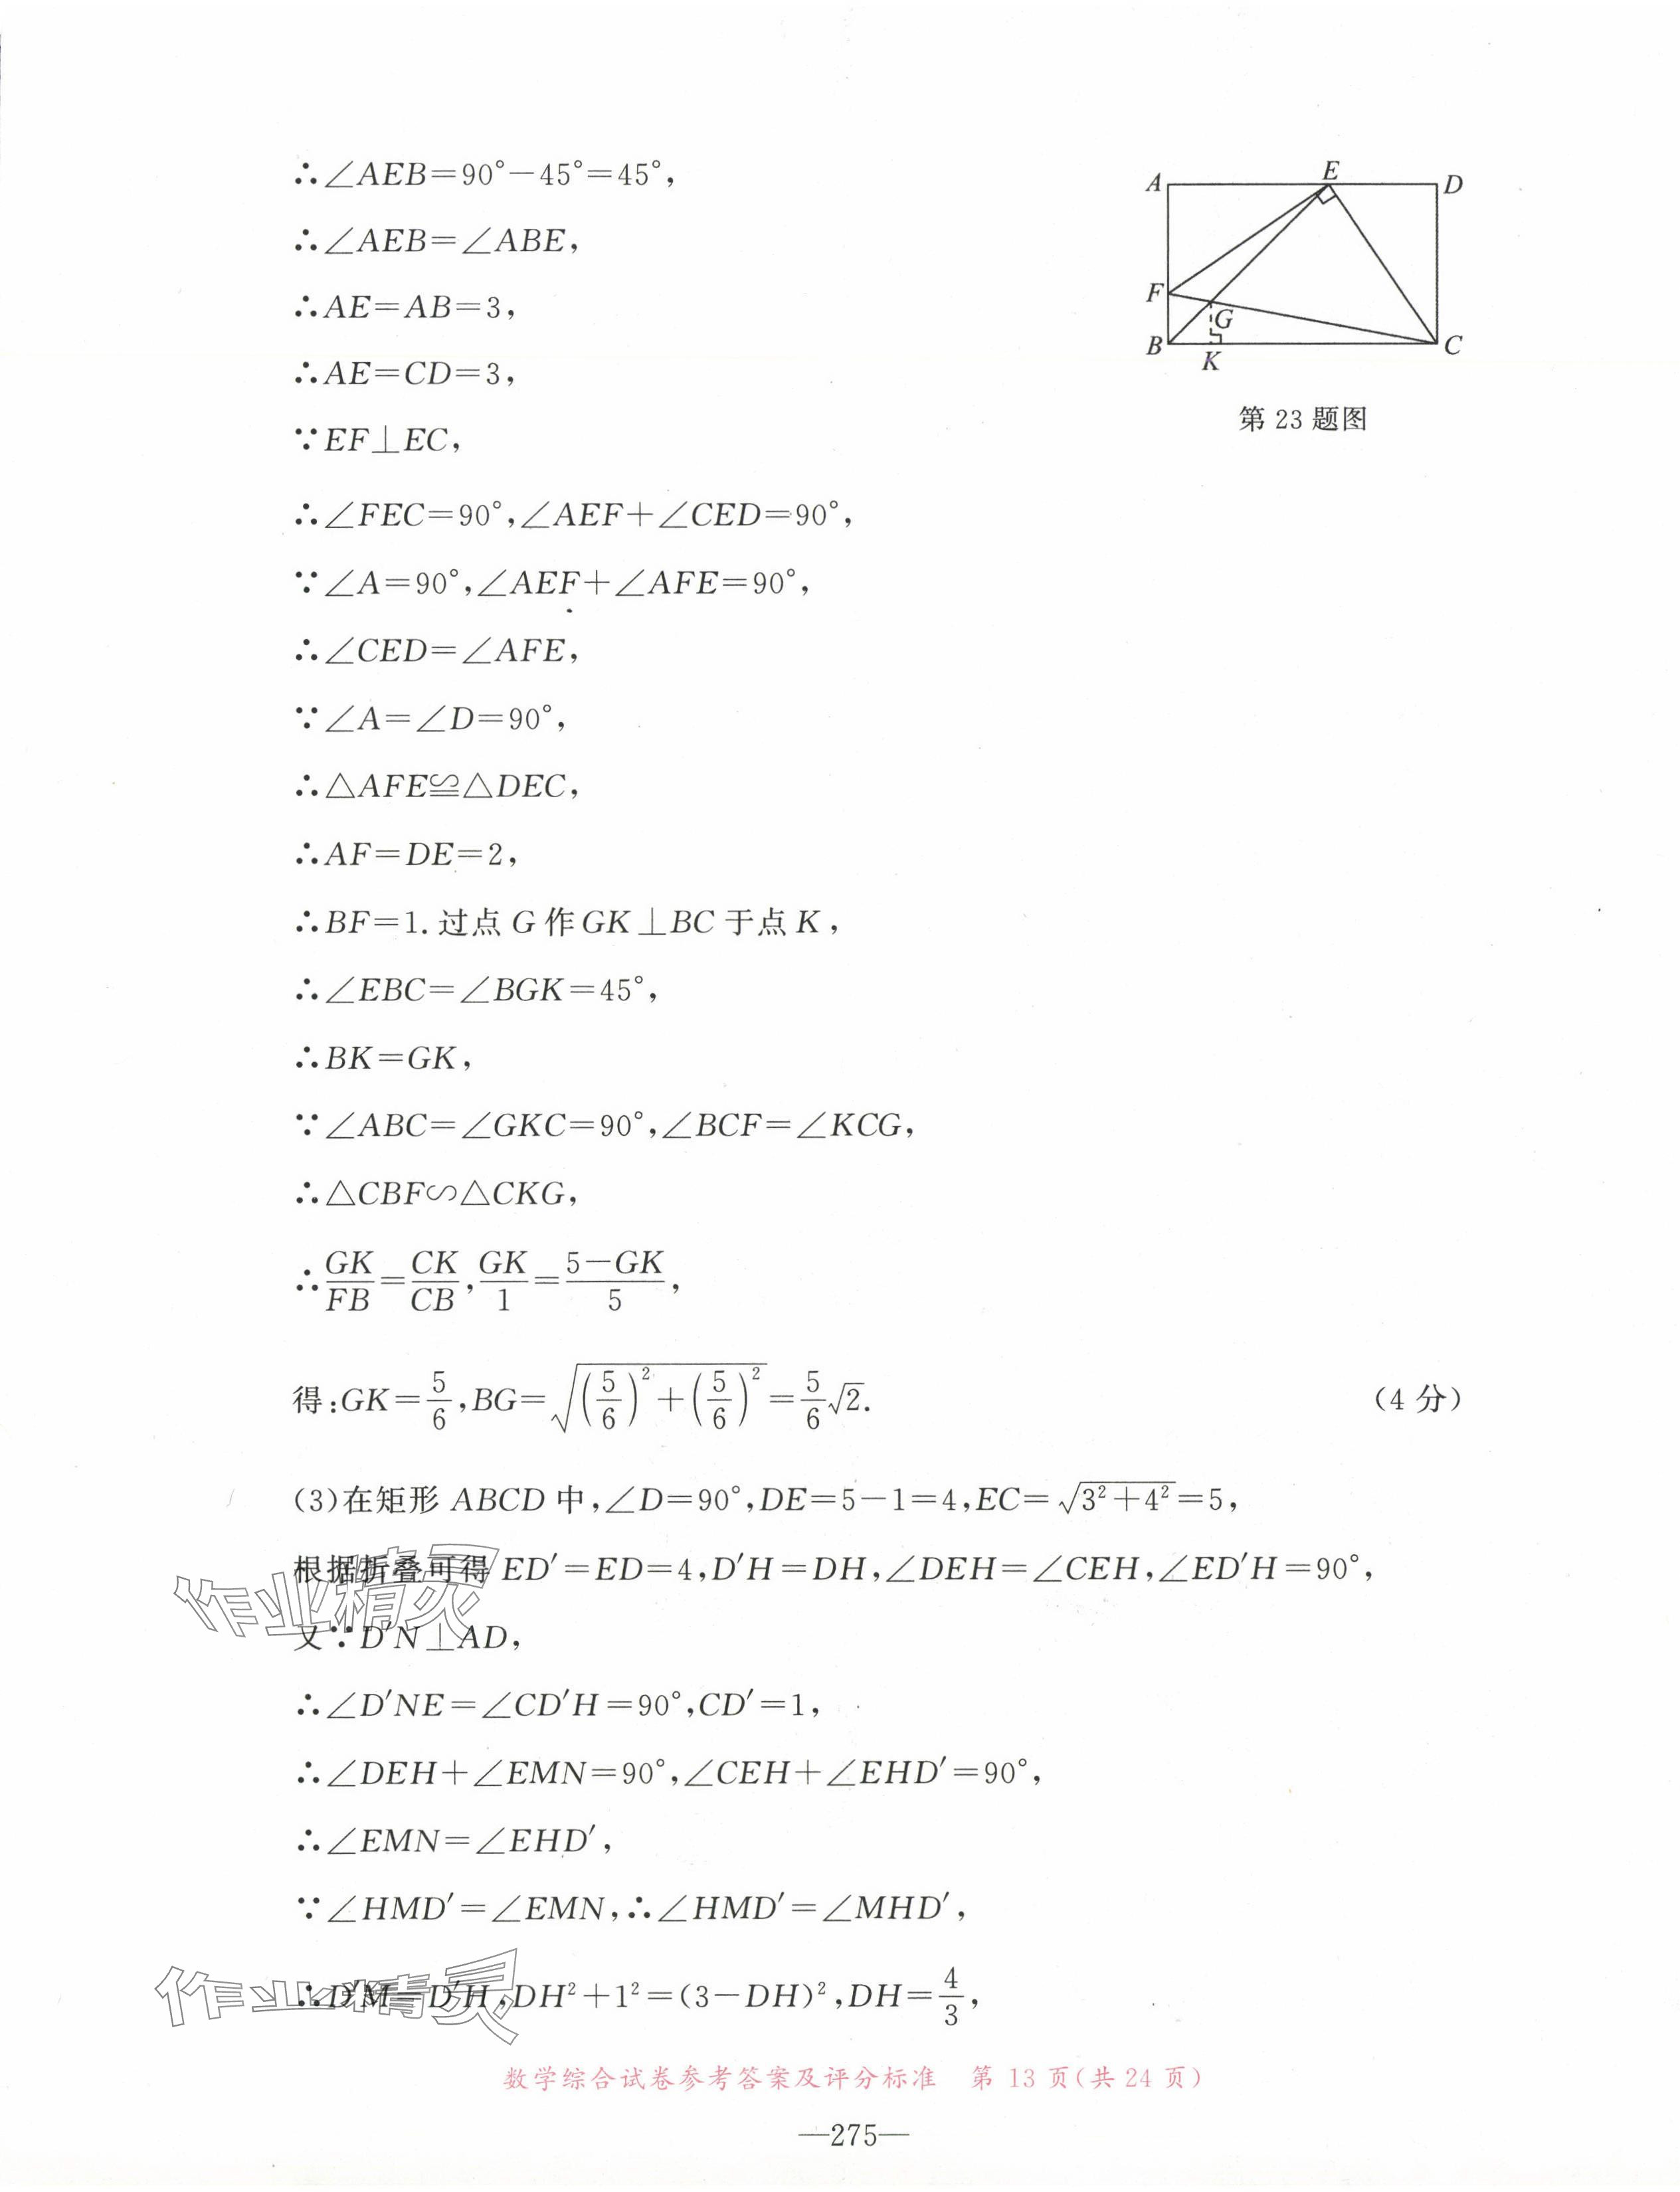 ∴∠AEB=90°-45°=45°,
∴∠AEB=∠ABE,
∴AE=AB=3,
∴AE=CD=3,
∵EF⊥EC,
A
E
D
F
G
B
K
C
第 23 题图
∴∠FEC=90°,∠AEF+∠CED=90°,
∵∠A=90°,∠AEF+∠AFE=90°,
∴∠CED=∠AFE,
∵∠A=∠D=90°,
∴△AFE≌△DEC,
∴AF=DE=2,
∴BF=1.过点 G 作 GK⊥BC 于点 K,
∴∠EBC=∠BGK=45°,
∴BK=GK,
∵∠ABC=∠GKC=90°,∠BCF=∠KCG,
∴△CBF∽△CKG,
∴GK/FB=CK/CB,GK/1=(5-GK)/5,
得:GK=5/6,BG=√((5/6)²+(5/6)²)=5/6√2. (4 分)
(3)在矩形 ABCD 中,∠D=90°,DE=5-1=4,EC=√(3²+4²)=5,
根据折叠可得 ED′=ED=4,D′H=DH,∠DEH=∠CEH,∠ED′H=90°,
作业精灵
又∵D′N⊥AD,
∴∠D′NE=∠CD′H=90°,CD′=1,
∴∠DEH+∠EMN=90°,∠CEH+∠EHD′=90°,
∴∠EMN=∠EHD′,
∵∠HMD′=∠EMN,∴∠HMD′=∠MHD′,
作业精灵
∴D′M=D′H,DH²+1²=(3-DH)²,DH=4/3,
数学综合试卷参考答案及评分标准 第 13 页(共 24 页)
—275—